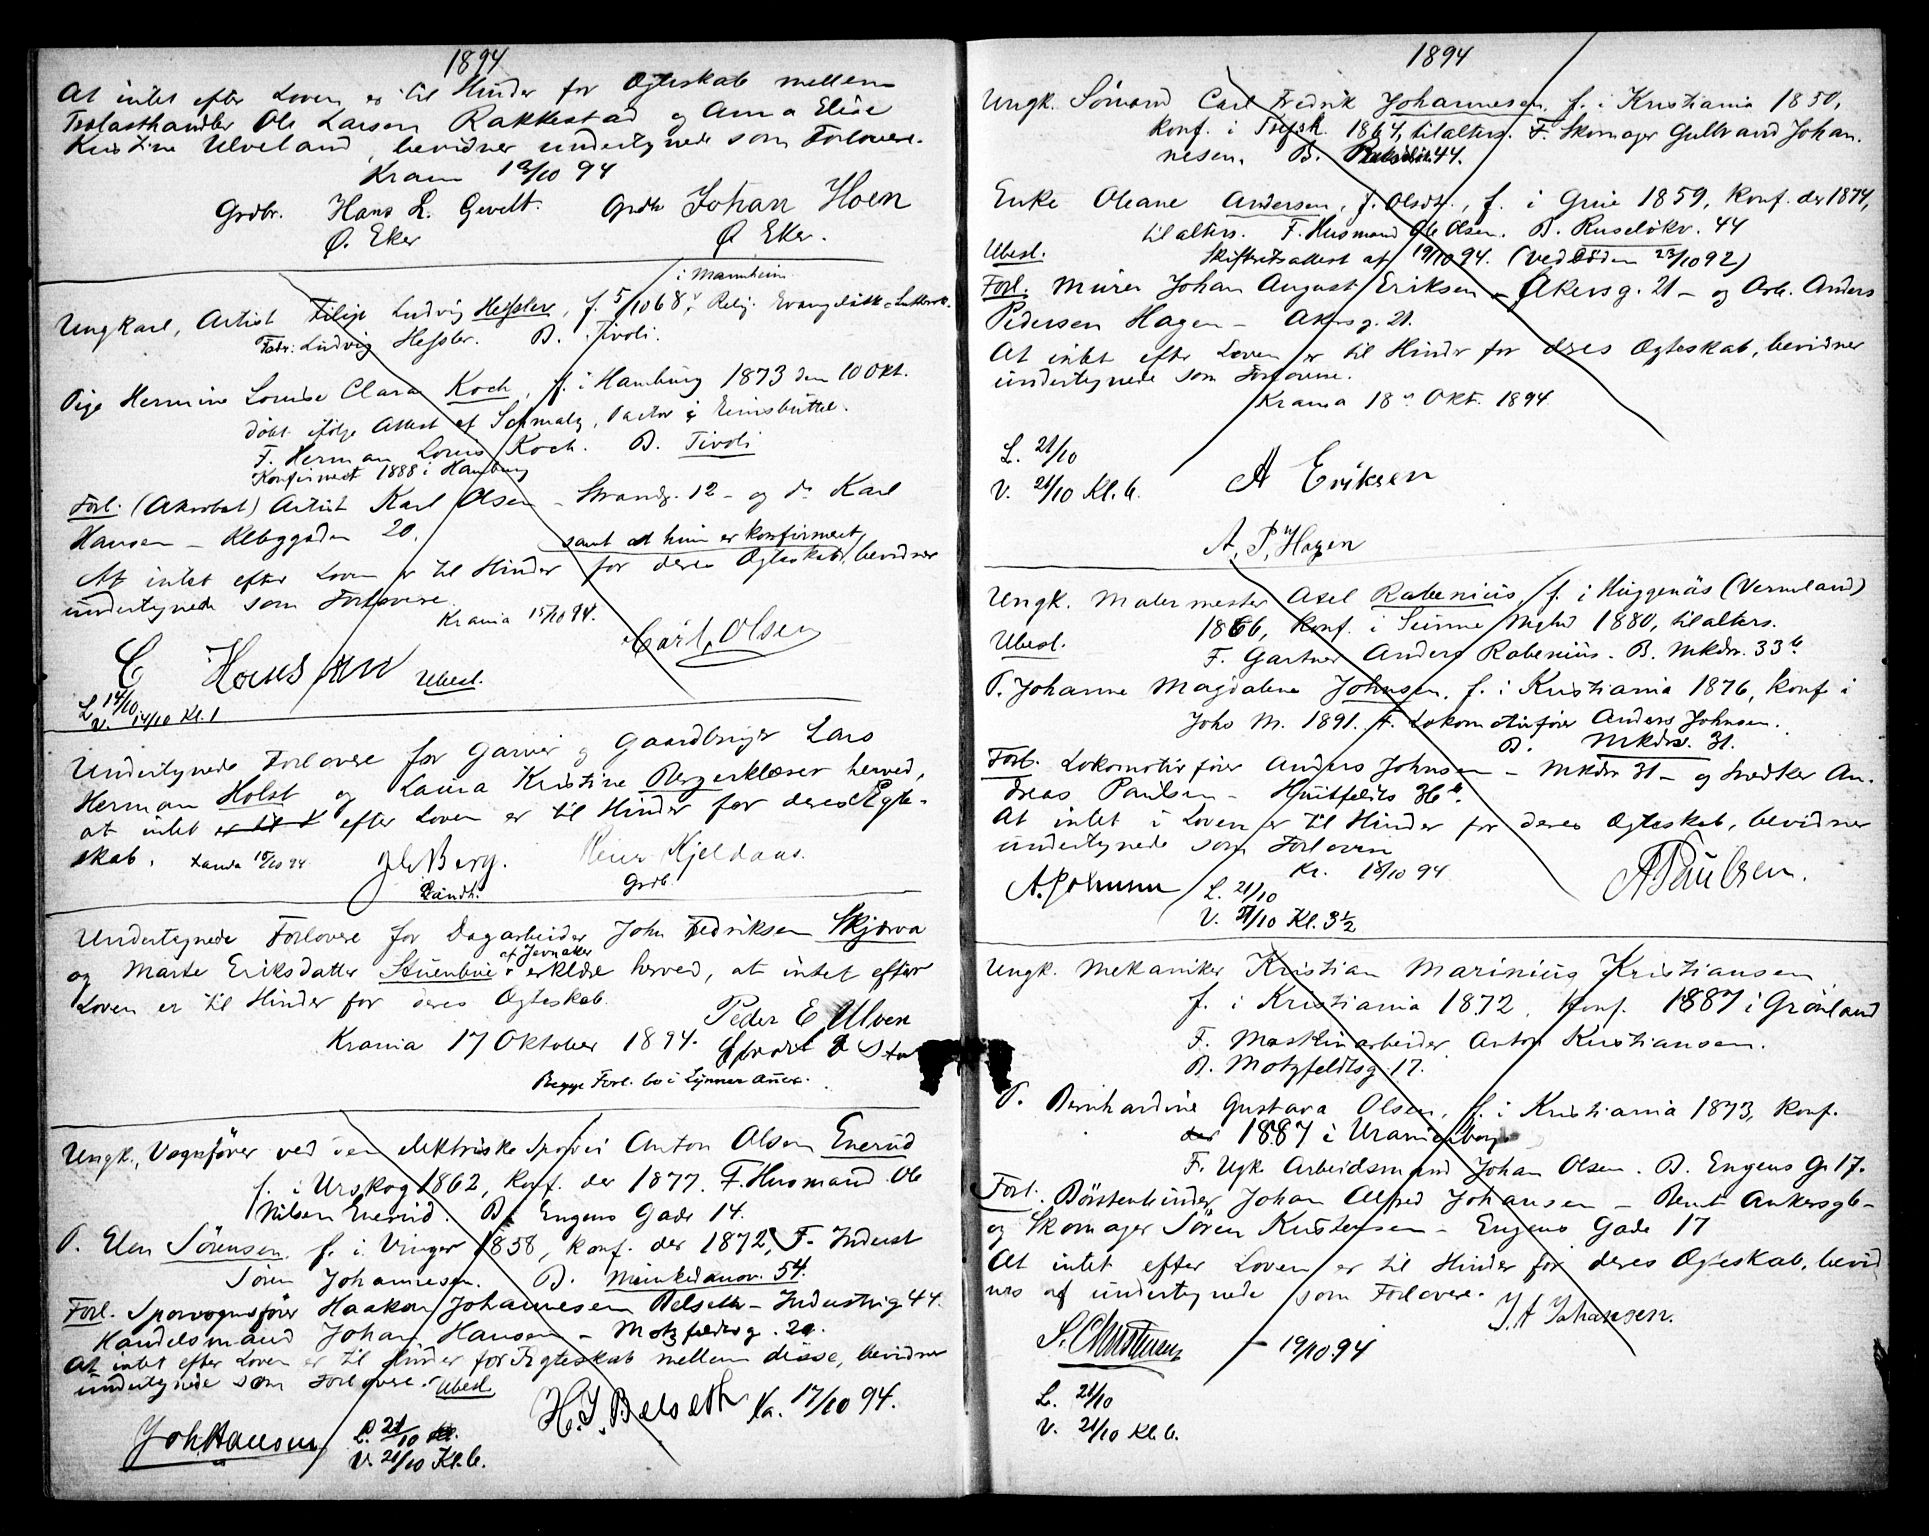 1894
At intet efter Loven er til Hinder for Ægteskab mellem
Trælasthandler Ole Larsen Rakkestad og Anna Elise
Kristine Ulveland, bevidner undertegnede som Forlovere.
Krania 12/10 94
Grdbr. Hans L. Gevelt. Grdbr Johan Hoen
Ø. Eker Ø. Eker.
i Mannheim
Ungkarl, Artist Filip Ludvig Hessler, f. 5/10 68, Relij. Evangelisk-Luthersk.
Fabr. Ludvig Hessler. B. Tivoli.
Pige Hermine Louise Clara Koch, f. i Hamburg 1873 den 10 Okt.
döbt ifölge Attest af Schmaltz, Pastor i Eimsbüttel.
F. Herman Louis Koch. B. Tivoli
Konfirmert 1888 i Hamburg
Forl. (Akrobat) Artist Karl Olsen – Strandg. 12 – og do Karl
Hansen – 20.
samt at hun er konfirmeret,
At intet efter Loven er til Hinder for deres Ægteskab, bevidner
undertegnede som Forlovere.
Krania 15/10 94.
C Hansen Ubesl. Carl Olsen
L. 14/10
V. 14/10 Kl. 1
Undertegnede Forlovere for Garver og Gaardbruger Lars
Herman Holst og Laura Kristine Berg erklærer herved,
at intet er til H efter Loven er til Hinder for deres Ægte-
skab. Berg. Kjeldaas.
Landh. Grdb.
Undertegnede Forlovere for Dagarbeider John Fredriksen Skjærva
af Jevnaker
og Marte Eriksdatter Stuenbue erklære herved, at intet efter
Loven er til Hinder for deres Ægteskab.
Peder E Ulven
Krania 17 Oktober 1894.
Begge Forl. bo i Lynner Annex.
Ungk., Vognfører ved den elektriske Sporvei Anton Olsen Enerud
f. i Urskog 1862, konf. der 1877. F. Husmand Ole
Nilsen Enerud. B. Engens Gade 14.
P. Elen Sörensen. f. i Vinger 1858, konf. der 1872, F. Inderst
Sören Johannesen. B. Munkedamsv. 54.
Forl. Sporvognsfører Haakon Johannesen Belseth – Industrig 44.
Handelsmand Johan Hansen – Motzfeldtsg. 20.
At intet efter Loven er til Hinder for Ægteskab mellem disse, bevidner
undertegnede som Forlovere. Ubesl.
Joh Hansen H. J. Belseth Ka. 17/10 94.
L. 21/10
V. 21/10 Kl. 6.
1894
Ungk. Sömand Carl Fredrik Johannesen, f. i Kristiania 1850,
konf. i Trefsk. 1864, til alters. F. Skomager Gulbrand Johan-
nesen. B. 44.
Enke Oleane Andersen, f. Olsdt., f. i Grue 1859, konf. der 1874,
til alters. F. Husmand Ole Olsen. B. Ruselökv. 44
Ubesl. Skifteretsattest af 19/10 94. (ved Döden 22/10 92)
Forl. Murer Johan August Eriksen – Akersg. 21 – og Arb. Anders
Pedersen Hagen – Akersg. 21.
At intet efter Loven er til Hinder for deres Ægteskab, bevidner
undertegnede som Forlovere.
Krania 18de Okt. 1894
L. 21/10
V. 21/10 Kl. 6. A Eriksen
A. P. Hagen
Ungk. Malermester Axel Rabenius, f. i Huggenäs (Vermland)
Ubesl. 1866, konf. i Sunne Mghd 1880, til alters.
F. Gartner Anders Rabenius. B. Mkdv. 33b
P. Johanne Magdalene Johnsen, f. i Kristiania 1876, konf. i
Johs M. 1891. F. Lokomotivfører Anders Johnsen.
B. Mkdv. 31.
Forl. Lokomotivfører Anders Johnsen – Mkdv 31 – og Snedker An-
dreas Paulsen – Huitfeldts 36b.
At intet i Loven er til Hinder for deres Ægteskab, bevidner
undertegnede som Forlovere
Kr. 18/10 94
A. Johnsen A Paulsen.
L. 21/10
V. 21/10 Kl. 3½
Ungk. Mekaniker Kristian Marinius Kristiansen
f. i Kristiania 1872, konf. 1887 i Grönland
F. Maskinarbeider Anton Kristiansen.
B. Motzfeldtsg. 17.
P. Bernhardine Gustava Olsen, f. i Kristiania 1873, konf.
der 1887 i Uranienborg
F. Ugk Arbeidsmand Johan Olsen. B. Engens G. 17.
Forl. Börstenbinder Johan Alfred Johansen – Bernt Ankersg 6 –
og Skomager Sören Kristensen – Engens Gade 17
At intet efter Loven er til Hinder for deres Ægteskab, bevid
nes af undertegnede som Forlovere.
J. A Johansen.
S. Christensen – 19/10 94
L. 21/10
V. 21/10 Kl. 6.